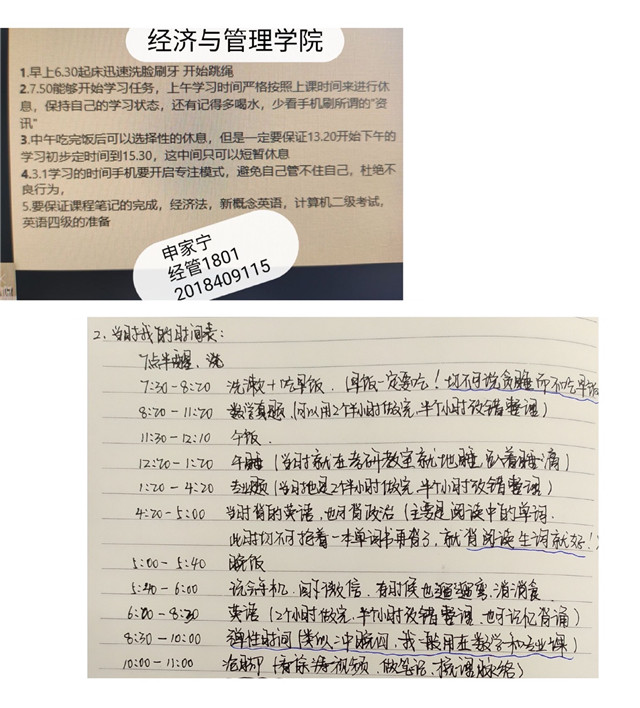 经济与管理学院
1.早上6.30起床迅速洗脸刷牙 开始跳绳
2.7.50能够开始学习任务，上午学习时间严格按照上课时间来进行休
息，保持自己的学习状态，还有记得多喝水，少看手机刷所谓的"资
讯"
3.中午吃完饭后可以选择性的休息，但是一定要保证13.20开始下午的
学习初步定时间到15.30，这中间只可以短暂休息
4.3.1学习的时间手机要开启专注模式，避免自己管不住自己，杜绝不
良行为，
5.要保证课程笔记的完成，经济法，新概念英语，计算机二级考试，
英语四级的准备
申家宁
经管1801
2018409115
2.当时我的时间表：
7点半醒、洗
7:30-8:20 洗漱+吃早饭．(早饭一定要吃！切不可说贪睡而不吃早饭
8:20-11:20 数学真题（可以用2个半小时做完，半个小时改错整理）
11:30-12:10 午饭．
12:20-1:20 午睡（当时就在考研教室就地睡，趴着睡滴）
1:20-4:20 专业题（当时也是2个半小时做完，半个小时改错整理）
4:20-5:00 当时背的英语，也可背政治（主要是阅读中的单词．
此时切不可抱着一本单词书再背了，就背阅读生词就好！）
5:00-5:40 晚饭
5:40-6:00 玩会手机，刷下微信，有时候也遛遛弯，消消食．
6:00-8:30 英语（2个小时做完，半个小时改错整理，也可记忆背诵）
8:30-10:00 弹性时间（类似 我一般用在数学和专业课）
10:00-11:00 (看徐涛视频，做笔记，梳理脉络)